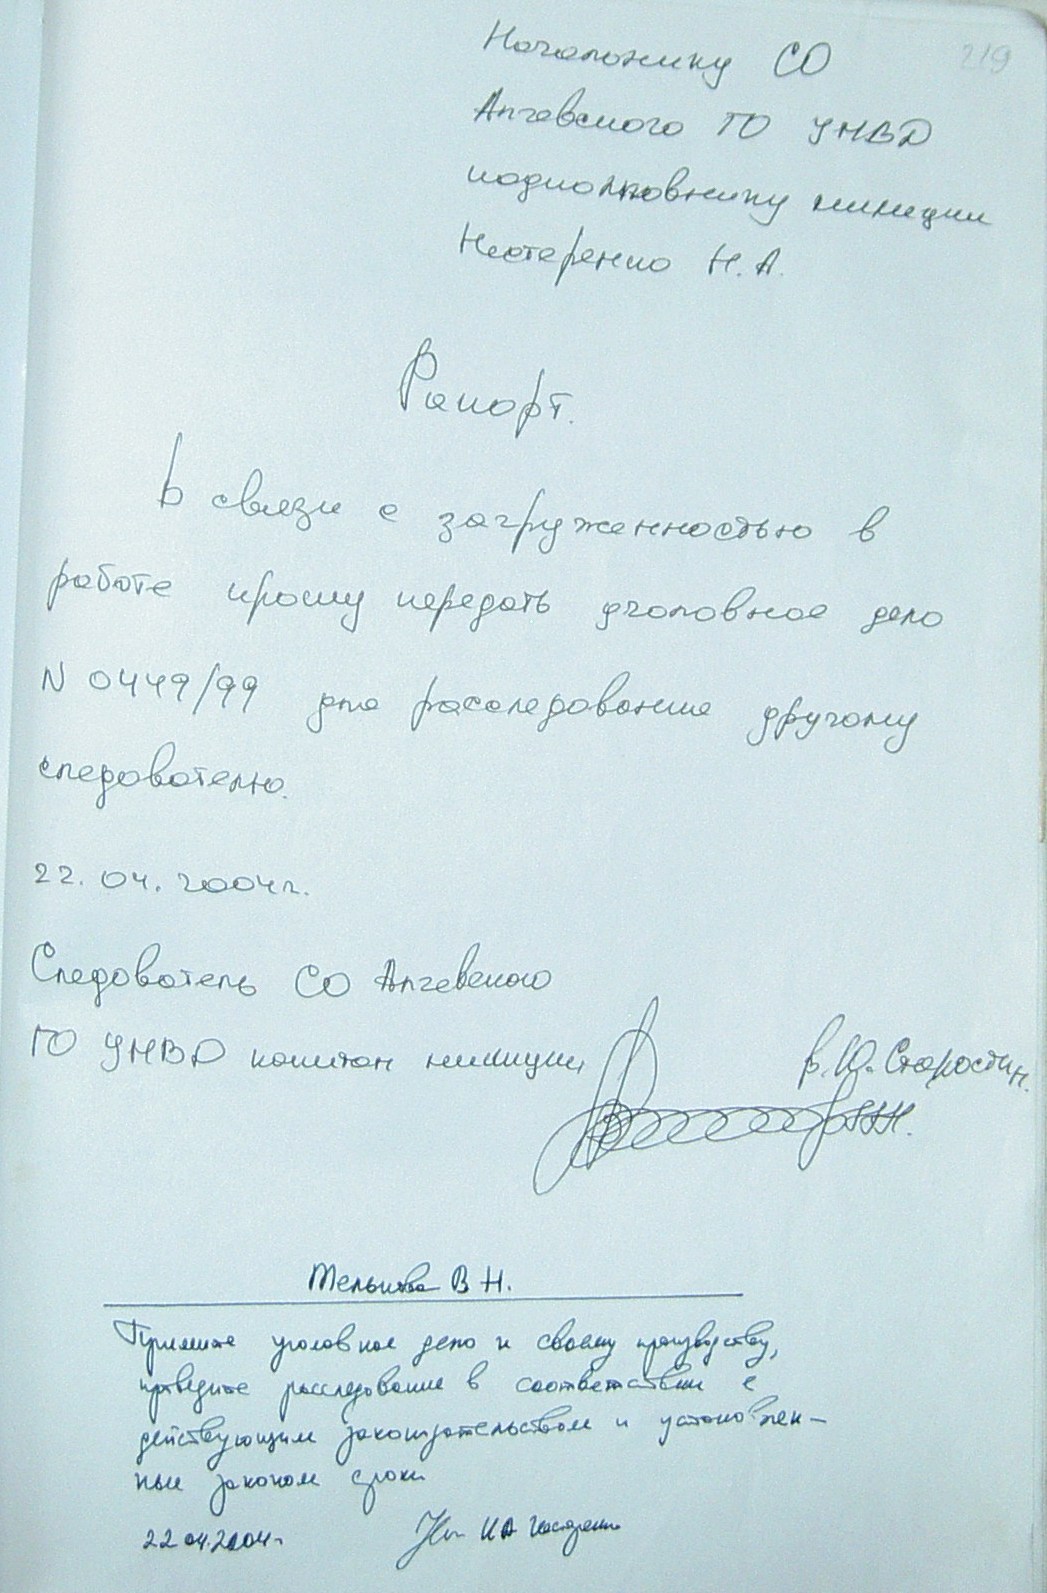 219
Начальнику СО
Алчевского ГО УМВД
подполковнику милиции
Нестеренко Н.А.
Рапорт.
В связи с загруженностью в
работе прошу передать уголовное дело
N 0449/99 для расследования другому
следователю.
22.04.2004г.
Следователь СО Алчевского
ГО УМВД капитан милиции
В.Ю. Старостин.
В Н.
Примите уголовное дело к своему производству,
проведите расследование в соответствии с
действующим законодательством и установлен-
ные законом сроки
22.04.2004г
НА Нестеренко